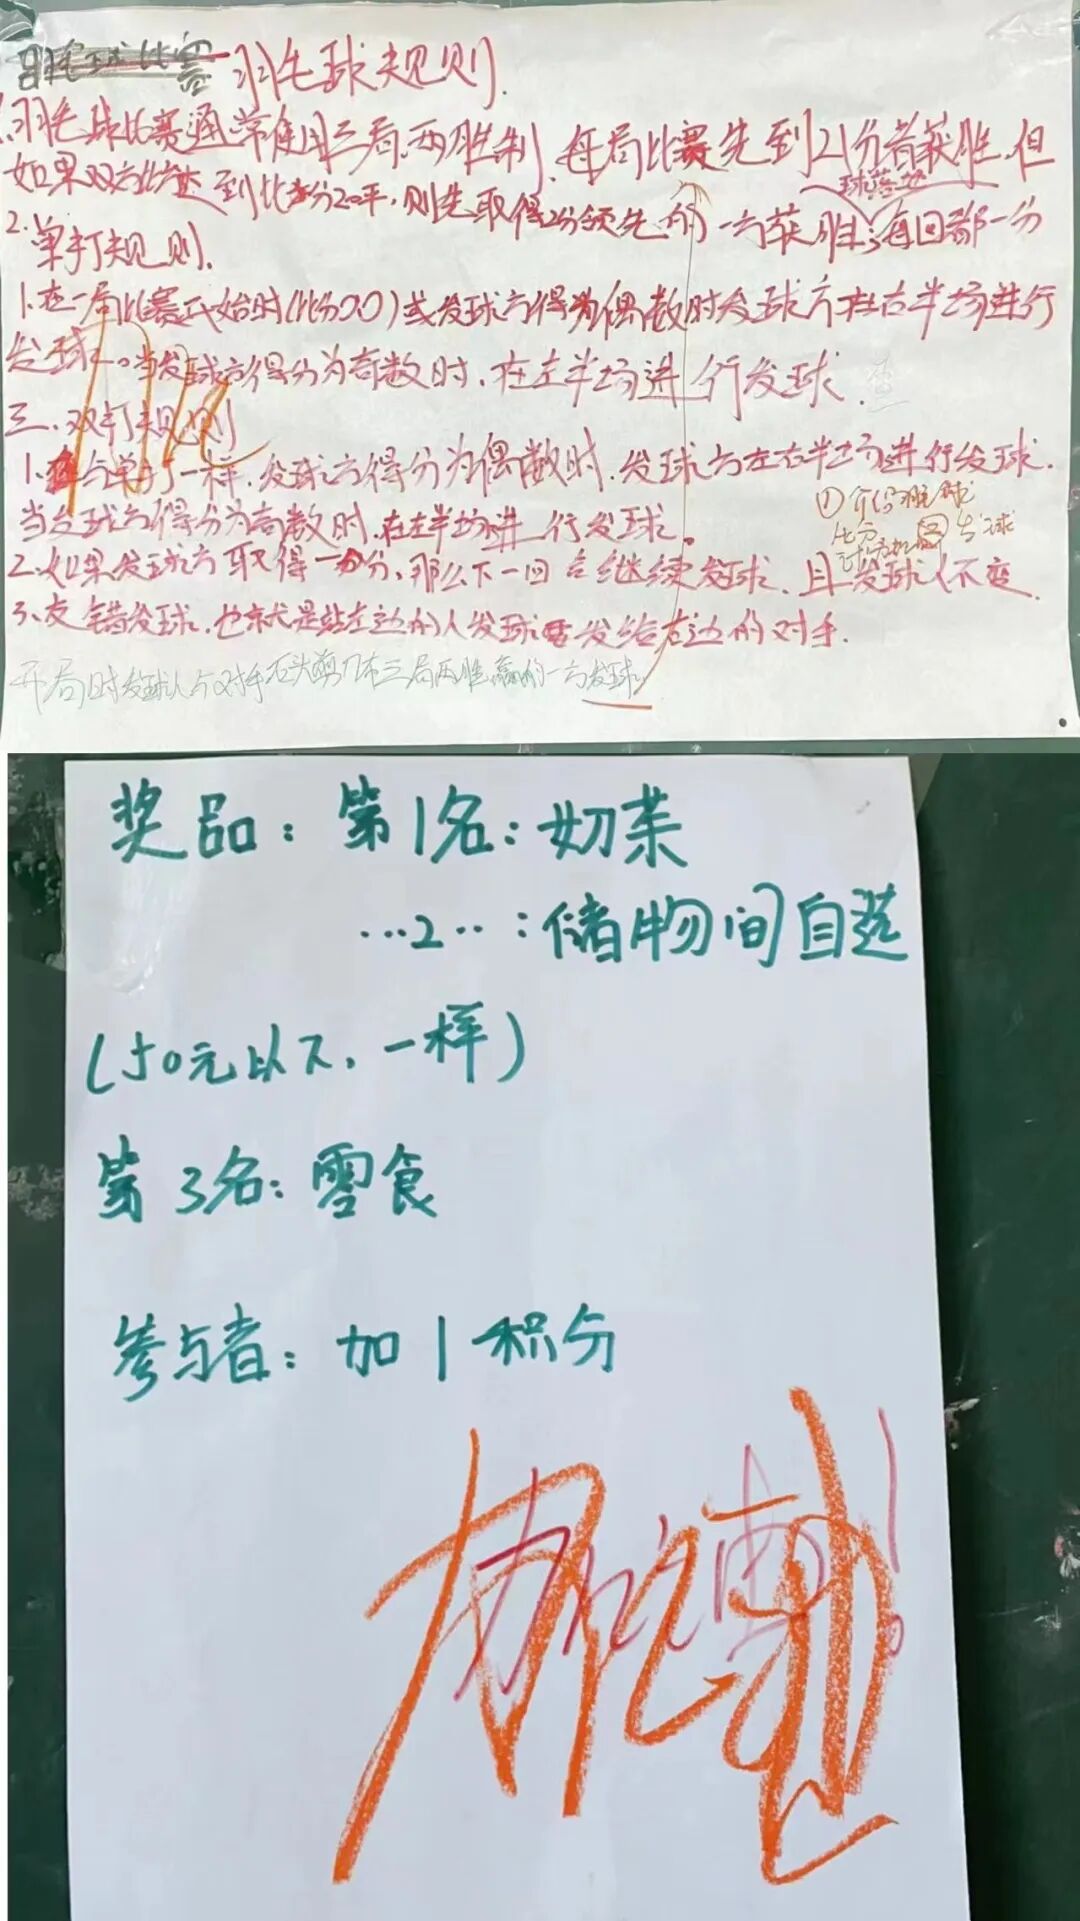 羽毛球比赛 羽毛球规则.
1.羽毛球比赛通常使用三局两胜制,每局比赛先到21分者获胜,但
如果双方比分达到比分20平,则先取得2分领先的一方获胜;每回都一分
球落地
2.单打规则.
1.在一局比赛开始时(比分0:0)或发球方得分为偶数时发球方在右半场进行
发球。当发球方得分为奇数时,在左半场进行发球.
三、双打规则
1.与单打一样,发球方得分为偶数时,发球方在右半场进行发球.
当发球方得分为奇数时,在左半场进行发球。
①介绍羽毛球
比分 ② 发球
2.如果发球方取得一分,那么下一回合继续发球,且发球人不变.
3.交错发球,也就是站左边的人发球要发给左边的对手.
开局时发球人与对手石头剪刀布三局两胜,赢的一方发球.
奖品:第1名:奶茶
…2…:储物间自选
(50元以下,一样)
第3名:零食
参与者:加1积分
加油!